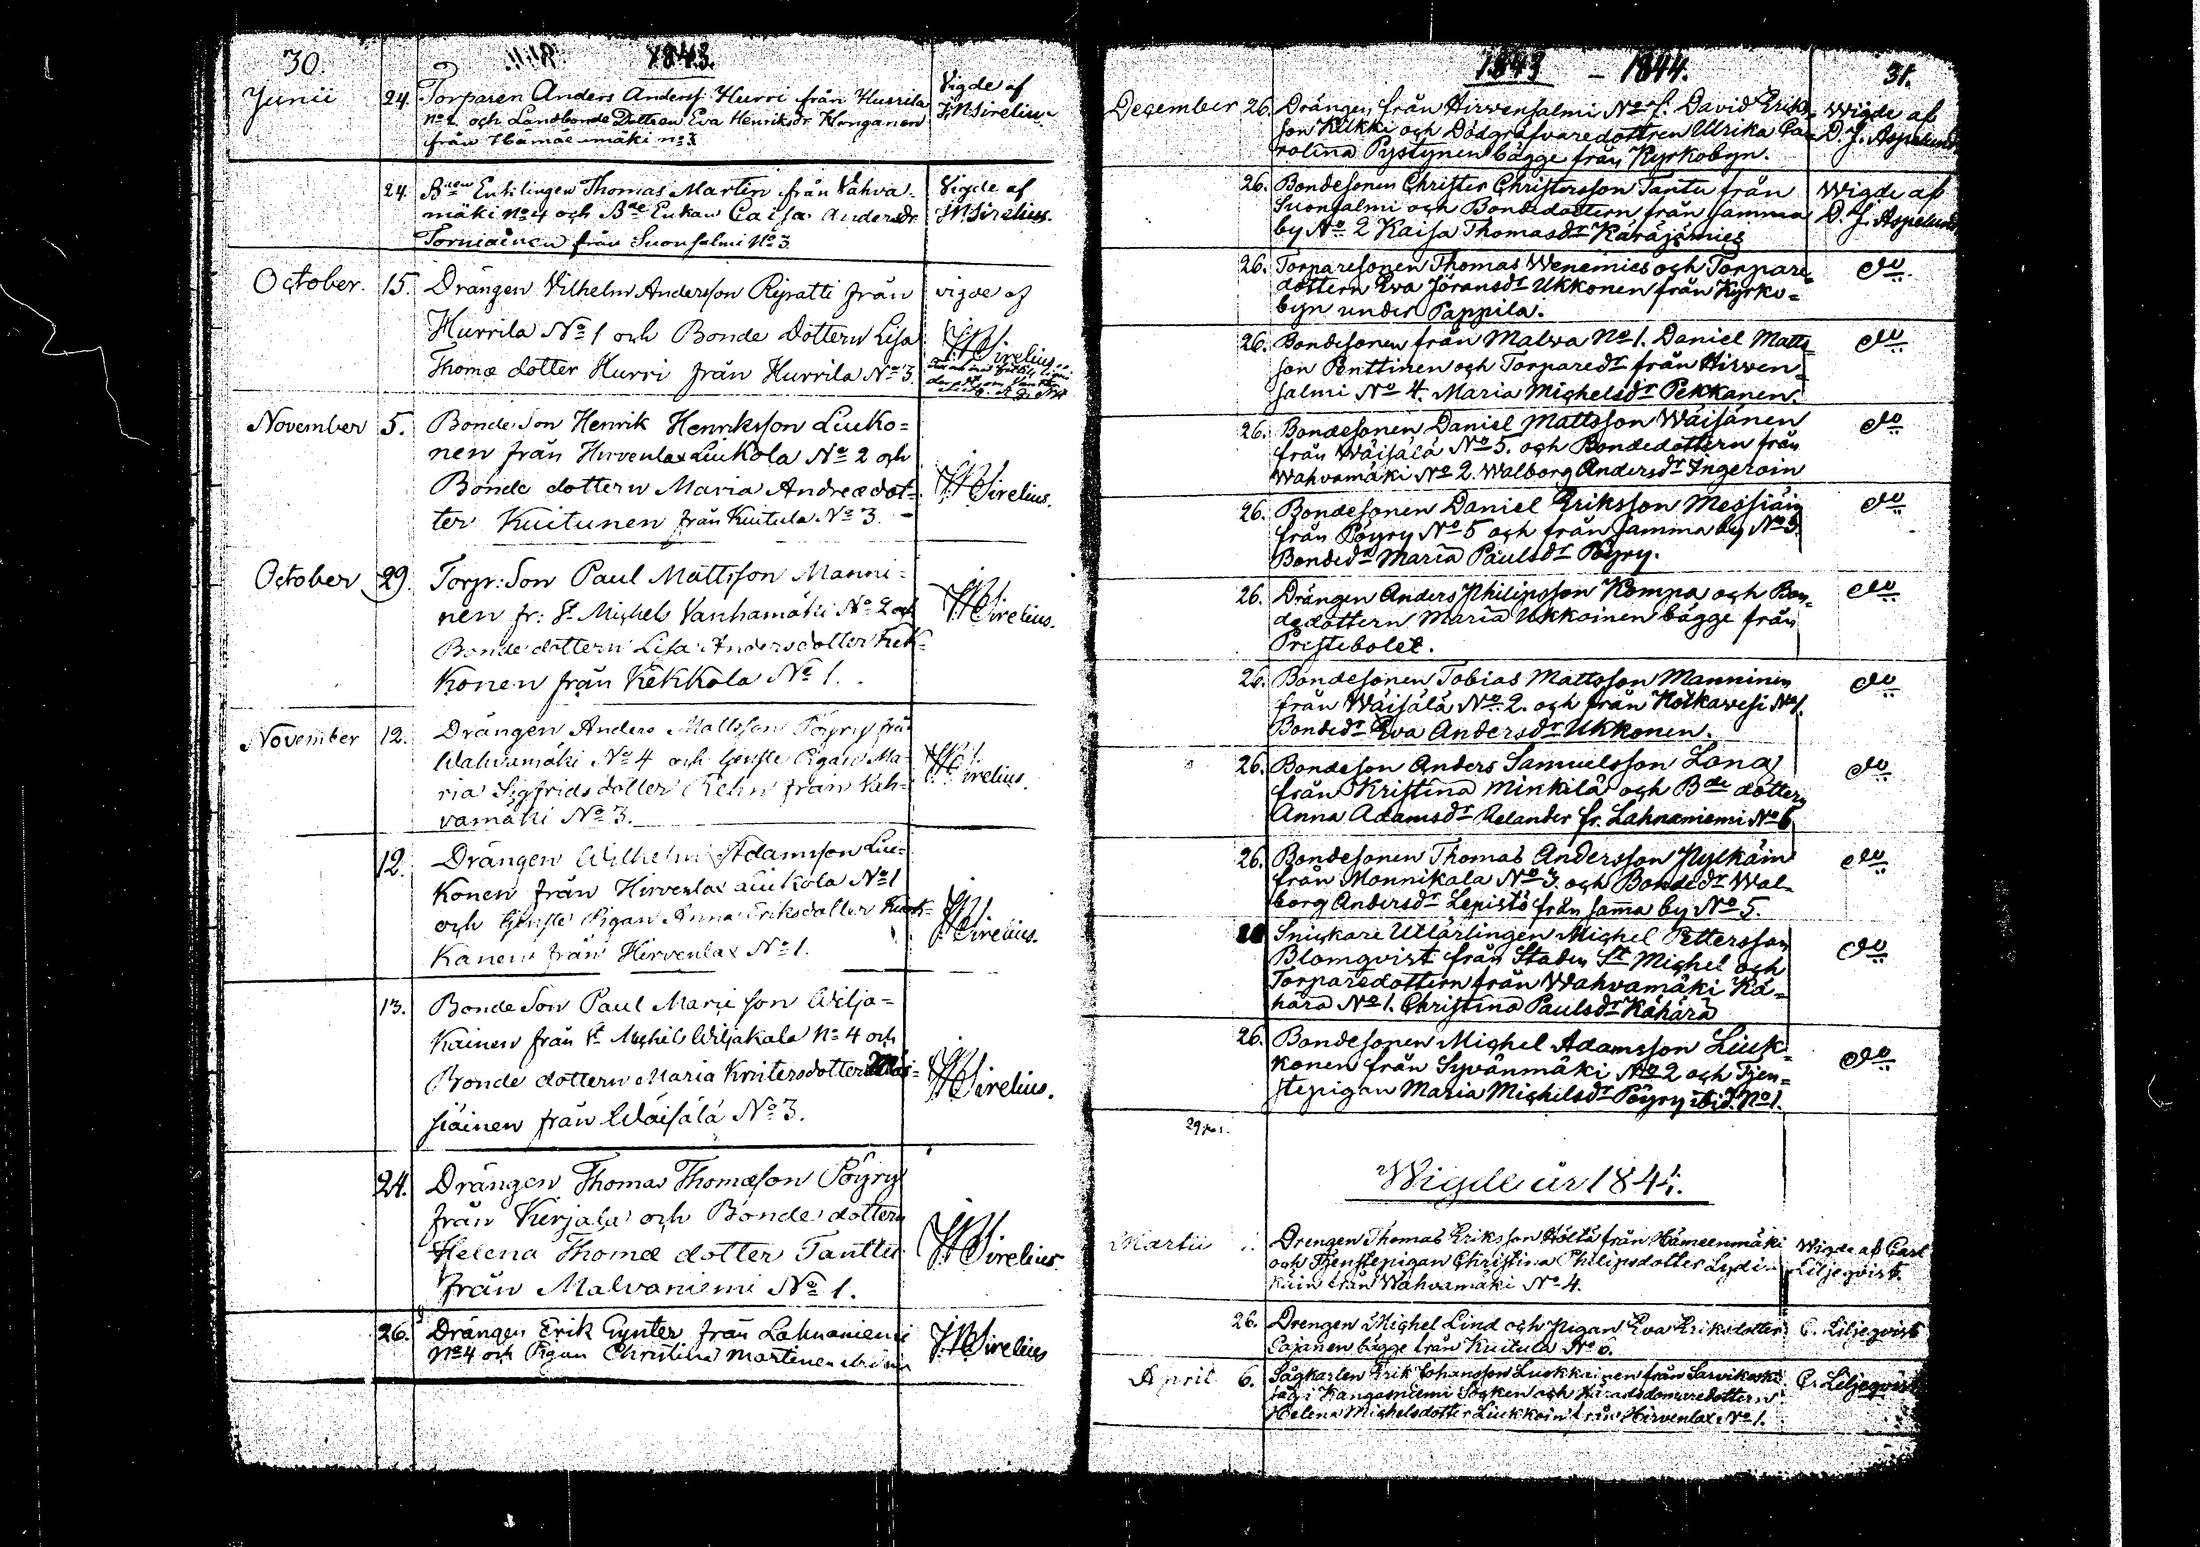 30.
1843.
Junii 24. Torparen Anders Anderss: Hurri från Hurrila Vigde af
No 2 och Landbonde Dottren Eva Henriksdr Kunganen JWSirelius
från Hämäenmäki no 3
24. Bden Enklingen Thomas Martin från Vahva- Vigde af
mäki No 4 och Bde Enkan Caisa Andersdr JWSirelius.
Torniainen från Suonsalmi No 3
October. 15. Drängen Vilhelm Andersson Ripatti från vigde af
Hurrila No 1 och Bonde Dottern Lisa JWSirelius
Thomæ dotter Hurri från Hurrila No 3
November 5. Bonde Son Henrik Henriksson Liuko-
nen från Hirvenlax Liukola No 2 och
Bonde dottern Maria Andreædot- JWSirelius.
ter Kuitunen från Kuitula No 3. -
October 29. Torp: Son Paul Mattsson Manni-
nen fr: St Michels Vanhamäki No 2 och JWSirelius.
Bonde dottern Lisa Andersdotter Kek-
konen från Kekkola No 1.
November 12. Drängen Anders Mattsson Pöyry från
Wahvamäki No 4 och tjenste Pigan Ma- JWSirelius.
ria Sigfrids dotter Rehn från Vah-
vamäki No 3.
12. Drängen Wilhelm Adamsson Liu-
konen från Hirvenlax Liukola No 1
och tjenste Pigan Anna Eriksdotter JWSirelius.
kanen från Hirvenlax No 1.
13. Bonde Son Paul Mariæ son Wilja-
kainen från St Michels Wiljakala No 4 och
Bonde dottern Maria Kristersdotter JWSirelius.
siäinen från Wäisälä No 3.
24. Drängen Thomas Thomæson Pöyry
från Kirjala och Bonde dottern
Helena Thomæ dotter Tanttu JWSirelius
från Malvaniemi No 1.
26. Drängen Erik Gynter från Lahnaniemi JWSirelius
No 4 och Pigan Christina Martinen
1843 - 1844. 31.
December 26. Drängen från Hirvensalmi No David Erik- Wigde af
son Kukki och Dödgräfvaredottren Ulrika Ca- D. J. Aspelund
rolina Pystynen bägge från Kyrkobyn.
26. Bondesonen Christer Christersson Tantu från Wigde af
Suonsalmi och Bondedottern från samma D. J. Aspelund
by No 2 Kaisa Thomasdr Käräjämies
26. Torparesonen Thomas Wenemies och Torpare- do
dottern Eva Göransdr Ukkonen från Kyrko-
byn under Pappila.
26. Bondesonen från Malwa No 1. Daniel Matts- do
son Penttinen och Torparedr från Hirven-
salmi No 4. Maria Michelsdr Pekkanen.
26. Bondesonen Daniel Mattsson Wäisänen do
från Wäisälä No 5. och Bondedottern från
Wahvamäki No 2. Walborg Andersdr Ingeroin
26. Bondesonen Daniel Eriksson Messiäin do
från Pöyry No 5 och från samma by No 3.
Bondedr Maria Paulsdr Pöyry.
26. Drängen Anders Philipsson Kompa och Bon- do
dedottern Maria Ukkoinen bägge från
Prestebolet.
26. Bondesonen Tobias Mattsson Manninen do
från Wäisälä No 2. och från Kotkavesi No 1.
Bondedr Eva Andersdr Ukkonen.
26. Bondeson Anders Samuelsson Lona do
från Kristina Minkilä och Bde dottern
Anna Adamsdr Relander fr. Lahnaniemi No 6
26. Bondesonen Thomas Andersson Pylkäin do
från Monnikala No 3. och Bondedr Wal-
borg Andersdr Lepistö från samma by No 5.
Snickare Utlärlingen Michel Pettersson do
Blomqvist från Staden St Michel och
Torparedottern från Wahvamäki Kä-
härä No 1. Christina Paulsdr Kähärä
26. Bondesonen Michel Adamsson Liuk- do
konen från Syvänmäki No 2 och Tjen-
stepigan Maria Michelsdr Pöyry ibid. No 1.
29 par.
Wigde år 1844.
Martii Drengen Thomas Eriksson Höltä från Hämeenmäki Wigde af Carl
och Tjenstepigan Christina Philipsdotter Lyydi- Liljeqvist.
käin från Wahvamäki No 4.
26. Drengen Michel Lind och Pigan Eva Eriksdotter C. Liljeqvist
Cajanen bägge från Kuitula No 6.
April 6. Sågkarlen Erik Johansson Luukkainen från Sarvikoski C. Liljeqvist
såg i Kangasniemi Socken och Häradsdomaredottern
Helena Michelsdotter Liukkoin från Hirvenlax No 1.